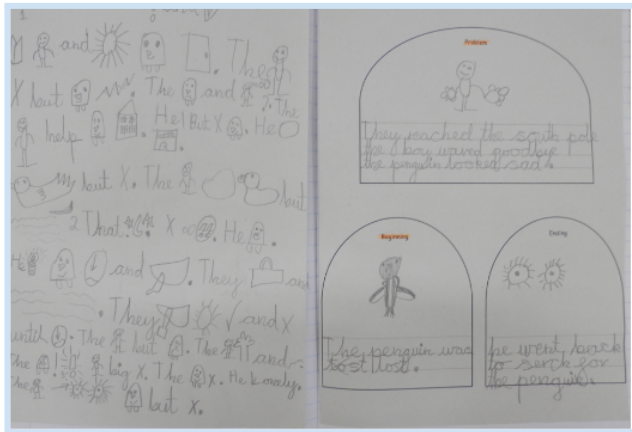 and
. The
X but . The and . The
help . He ! But X . He
but X. The but
2 That . X . He .
He and . They and
. They ✓ and X
until . The but . The and .
The big X. The X. He is lonely.
The but X.
Problem
They reached the south pole
the boy waved goodbye
the penguin looked sad.
Beginning
The penguin was
lost lost.
Ending
he went back
to serck for
the penguin.